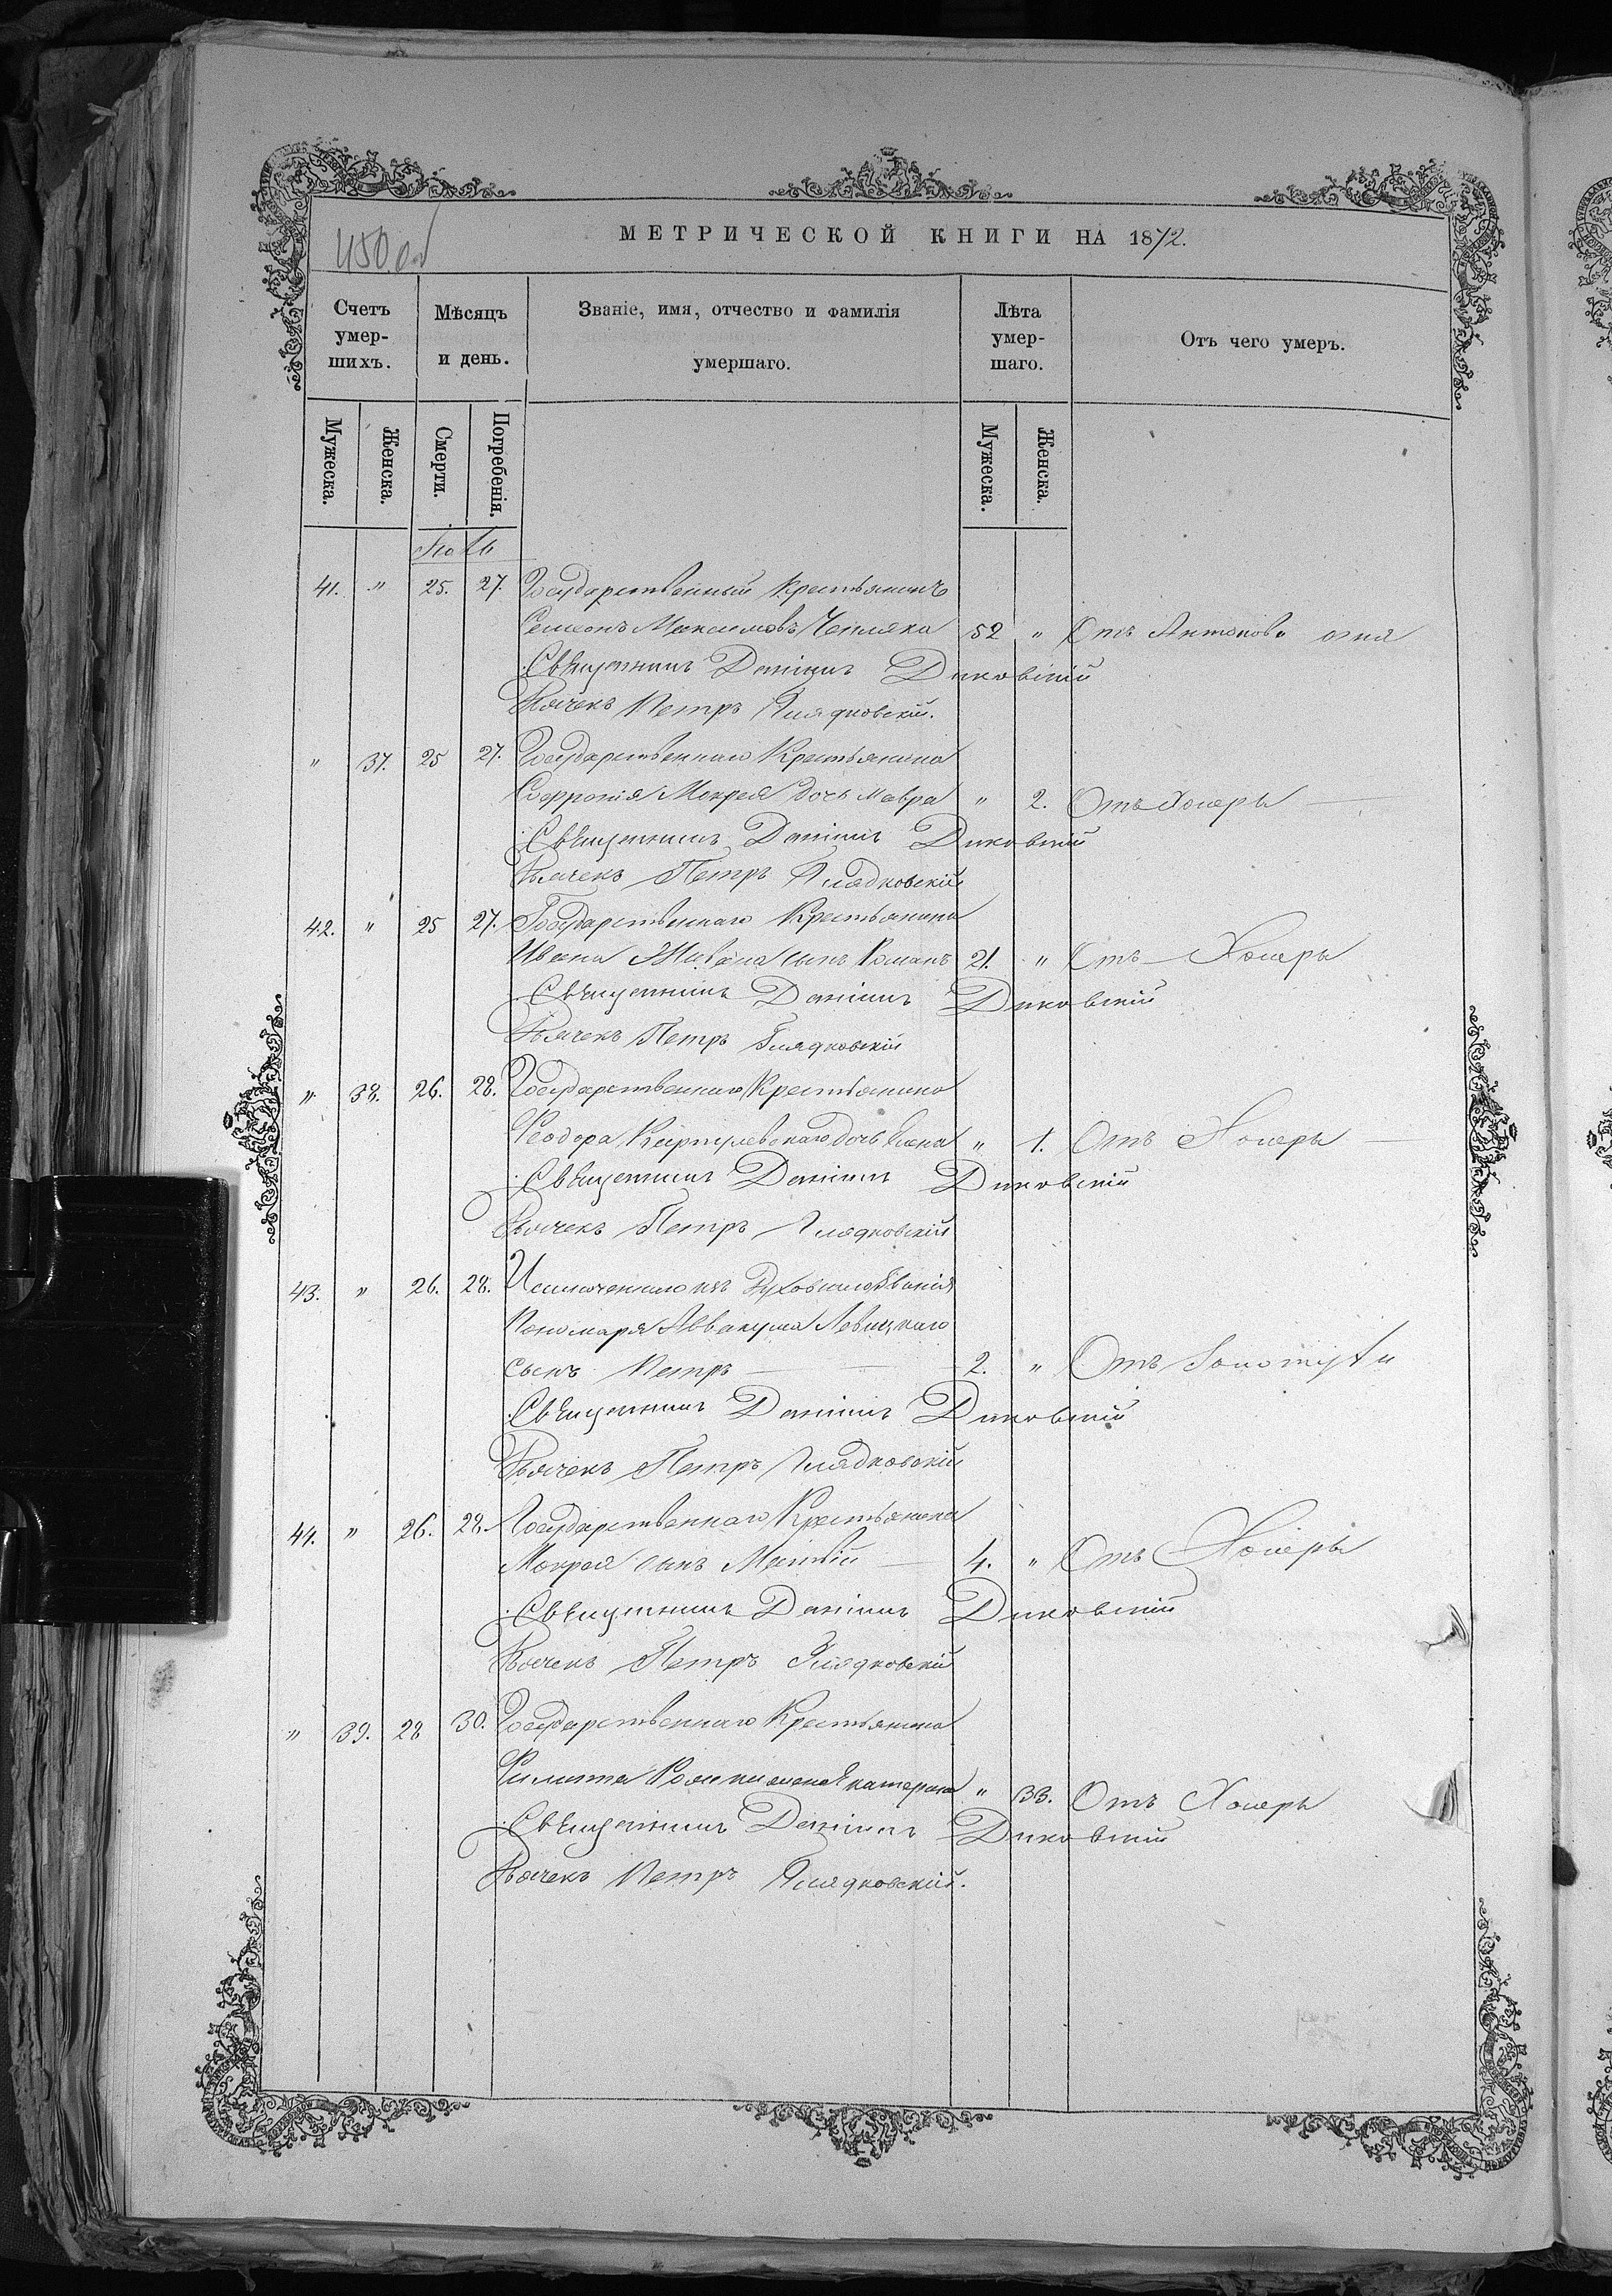 450 об
МЕТРИЧЕСКОЙ КНИГИ НА 1872.
Счетъ умер- шихъ.
Мѣсяцъ и день.
Званіе, имя, отчество и фамилія умершаго.
Лѣта умер- шаго.
Отъ чего умеръ.
Мужеска. Женска. Смерти. Погребенія. Мужеска. Женска.
41. " 25. 27. Государственный Крестьянинъ
Симеонъ Максимовъ 52 " Отъ Антонова огня
Священникъ Даніилъ Диковскій
Дьячекъ Петръ Глядковскій.
" 37. 25 27. Государственнаго Крестьянина
Софронія Мокрея дочь Мавра " 2. Отъ Холеры
Священникъ Даніилъ Диковскій
Дьячекъ Петръ Глядковскій
42. " 25 27. Государственнаго Крестьянина
Ивана сынъ Романъ 21. " Отъ Холеры
Священникъ Даніилъ Диковскій
Дьячекъ Петръ Глядковскій
" 38. 26. 28. Государственнаго Крестьянина
Феодора дочь " 1. Отъ Холеры
Священникъ Даніилъ Диковскій
Дьячекъ Петръ Глядковскій
43. " 26. 28. Исключеннаго изъ Духовнаго Званія
Пономаря Аввакума Левицкаго
сынъ Петръ 2. " Отъ Золотухи
Священникъ Даніилъ Диковскій
Дьячекъ Петръ Глядковскій
44. " 26. 28. Государственнаго Крестьянина
Мокрея сынъ Матвій 4. " Отъ Холеры
Священникъ Даніилъ Диковскій
Дьячекъ Петръ Глядковскій
" 39. 28 30. Государственнаго Крестьянина
Филиппа жена Екатерина " 33. Отъ Холеры
Священникъ Даніилъ Диковскій
Дьячекъ Петръ Глядковскій.